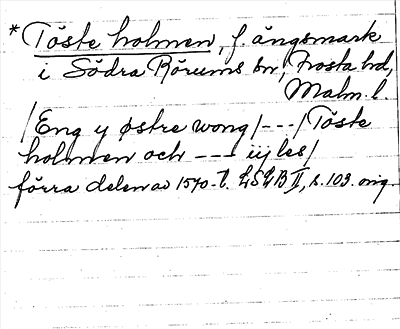 * Töste holmen, f. ängsmark
i Södra Rörums sn, Frosta hd,
Malm. l.
/Eng y østre wong/---/Töste
holmen och --- iij les/
förra delen av 1570-t. LSLB II, s. 103. orig.